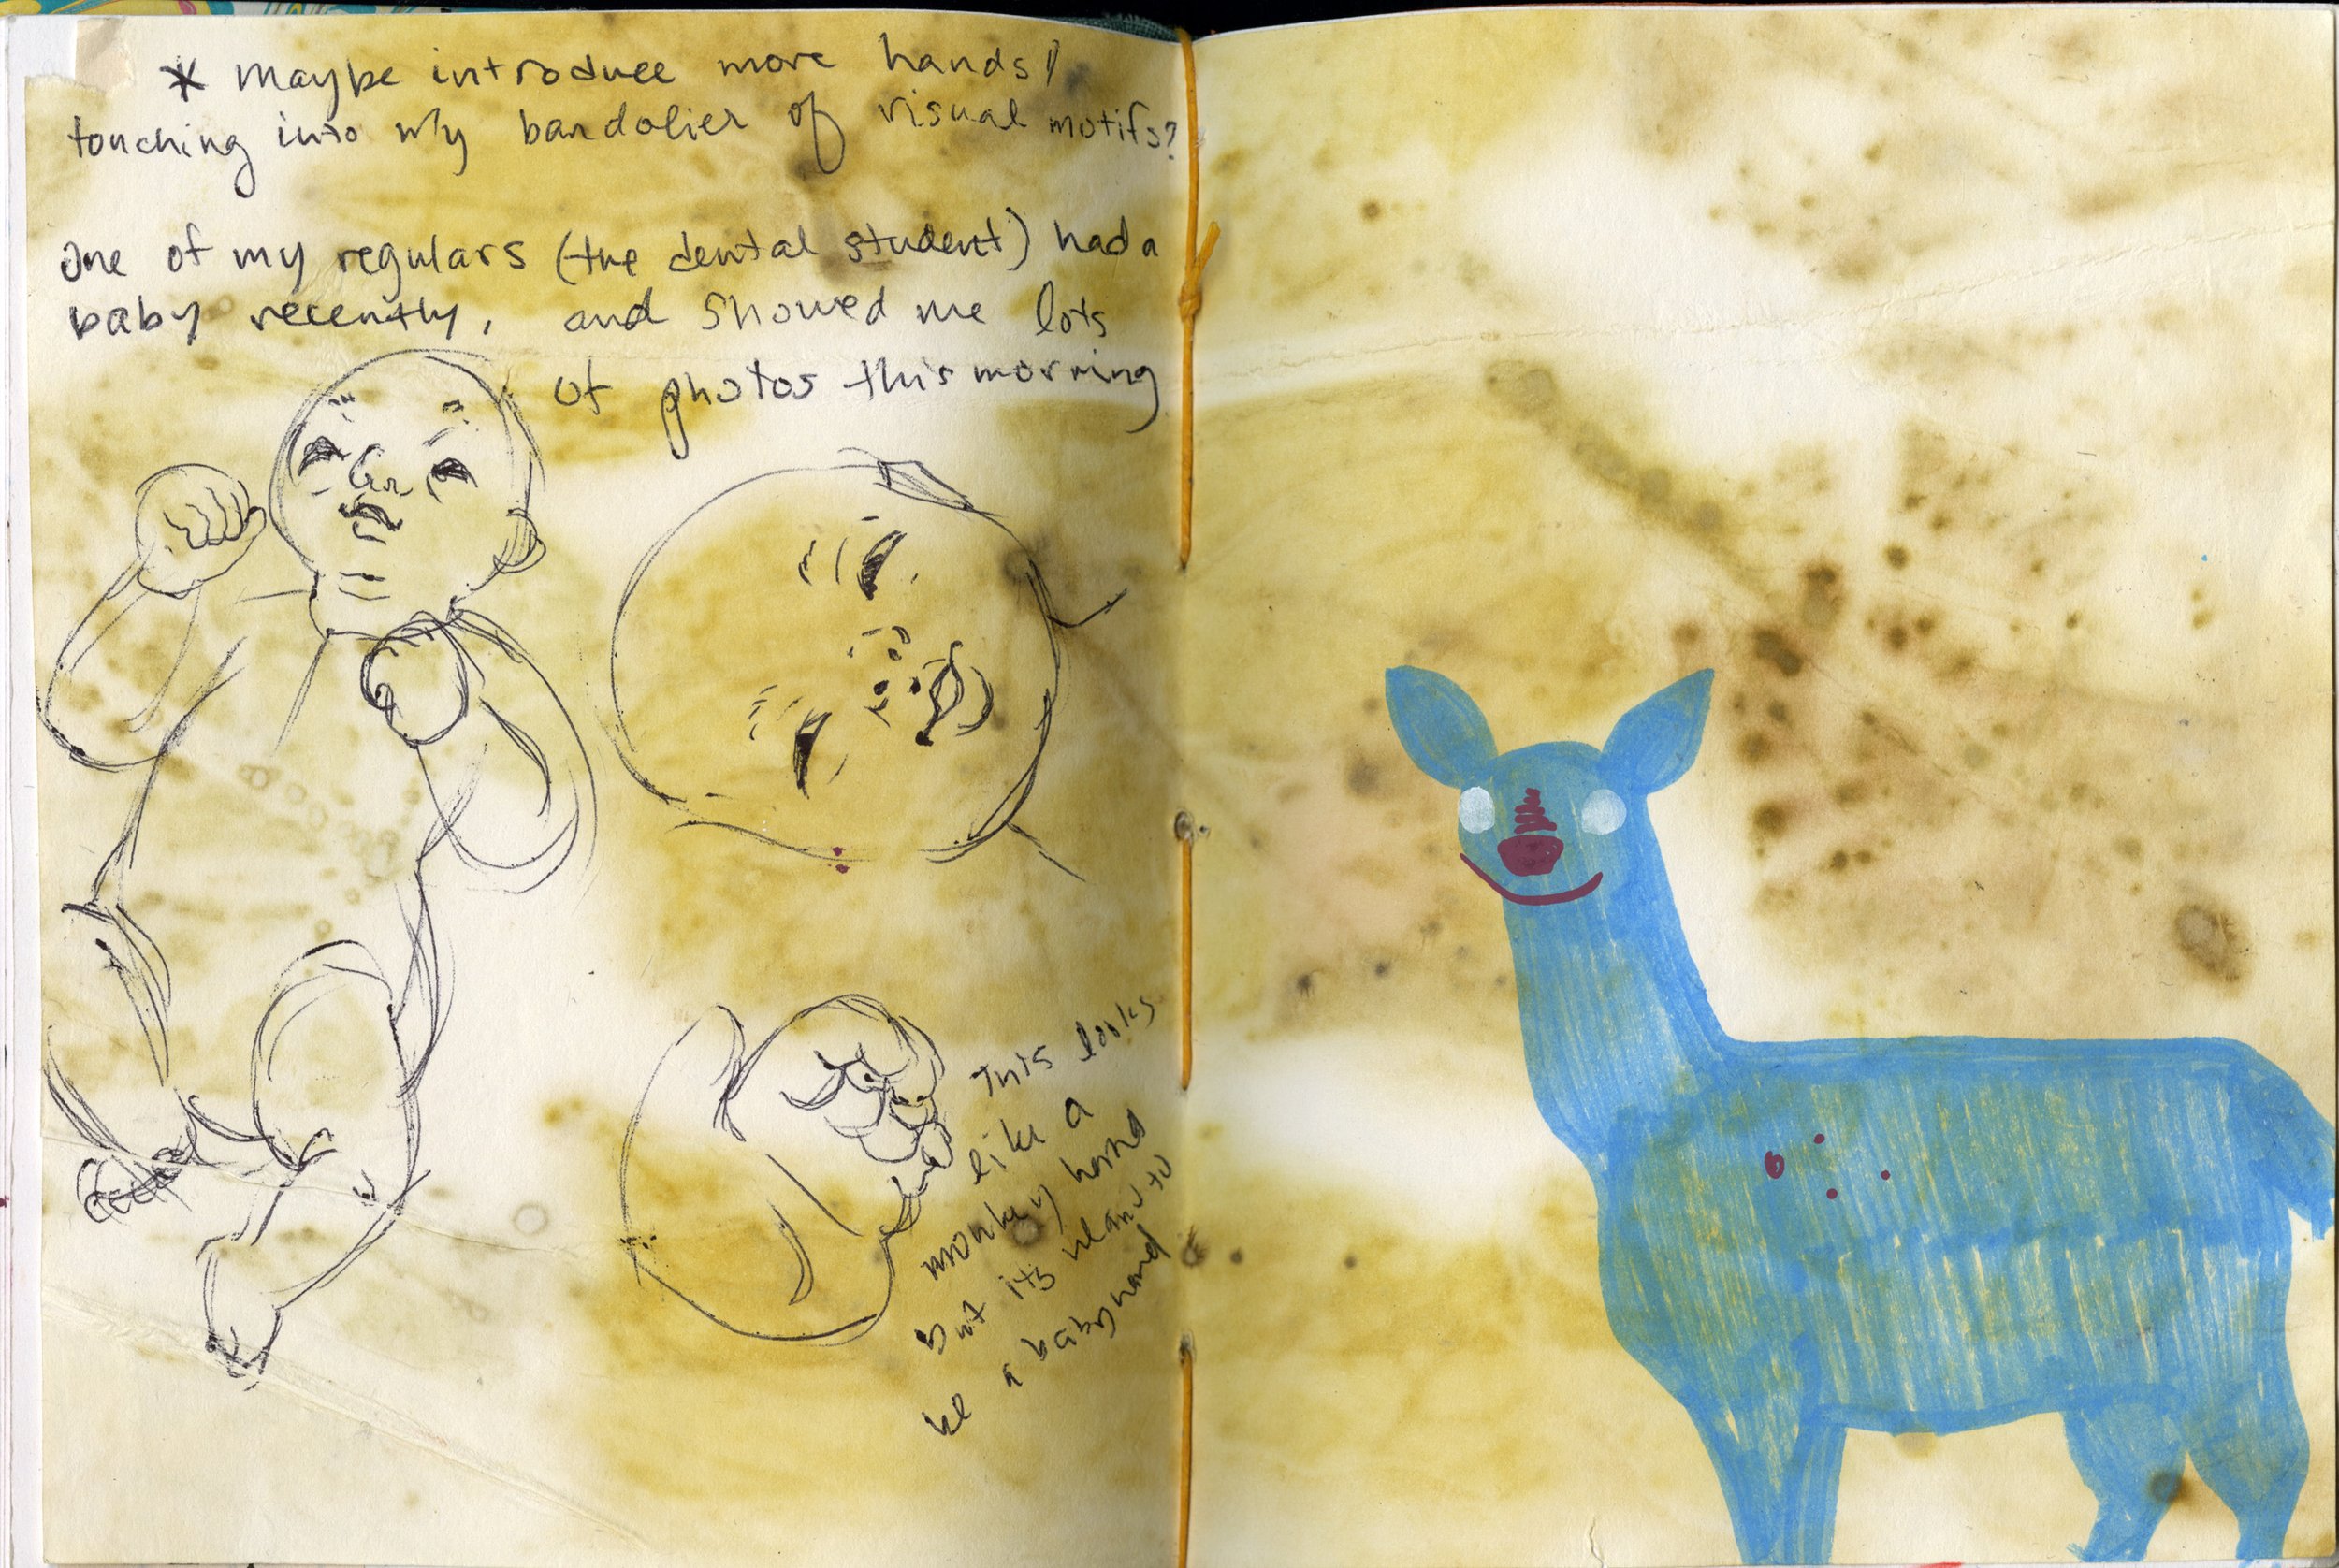 * maybe introduce more hands/
touching into my bandolier of visual motifs?
One of my regulars (the dental student) had a
baby recently, and showed me lots
of photos this morning
This looks
like a
monkey hand
but its meant to
be a baby hand